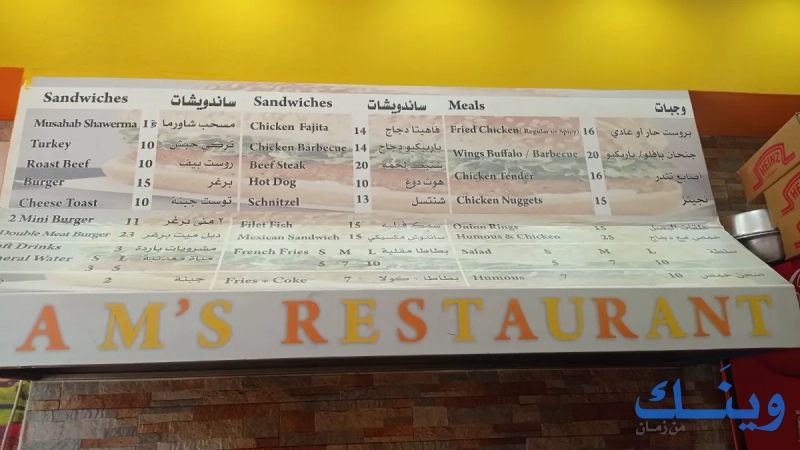 Sandwiches ساندويشات
Musahab Shawerma مسحب شاورما
Turkey 10 تركي حبش
Roast Beef 10 روست بيف
Burger 15 برغر
Cheese Toast 10 توست جبنة
2 Mini Burger 11 ٢ مني برغر
Double Meat Burger 23 دبل ميت برغر
Drinks 3 مشروبات باردة
Water S L مياه معدنية
3 5
2 جبنة
Sandwiches ساندويشات
Chicken Fajita 14 فاهيتا دجاج
Chicken Barbecue 14 باربيكيو دجاج
Beef Steak 20 ستيك لحمة
Hot Dog 10 هوت دوغ
Schnitzel 13 شنتسل
Filet Fish 15 سمك فيليه
Mexican Sandwich 15 ساندوش مكسيكي
French Fries S M L بطاطا مقلية
5 7 10
Fries + Coke 7 بطاطا + كولا
Meals وجبات
Fried Chicken (Regular or Spicy) 16 بروست حار أو عادي
Wings Buffalo / Barbecue 20 جنحان بافلو/ باربكيو
Chicken Tender 16 أصابع تندر
Chicken Nuggets 15 نجيتز
Onion Rings 15 حلقات البصل
Humous & Chicken 25 حمص مع دجاج
Salad S M L سلطة
5 7 10
Humous 7 10 صحن حمص
AM'S RESTAURANT
HEINZ
وينك
من زمان